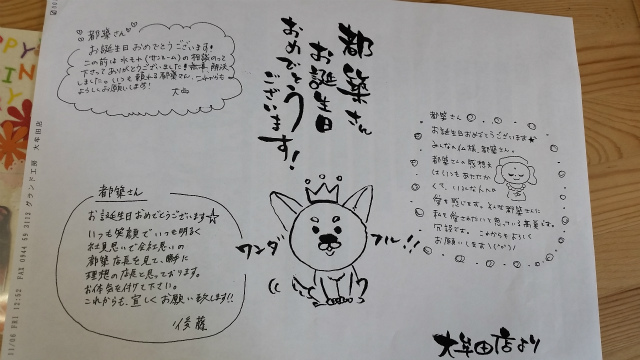 都築さん
お誕生日おめでとうございます!
この前は水もれ(サンルーム)の相談のって
下さってありがとうございました!無事、解決
しました。いつも頼れる都築さん、これからも
よろしくお願いします!
大山
都築さん
お誕生日
おめでとう
ございます!
都築さん
お誕生日おめでとうございます
みんなの仏様、都築さん。
都築さんの感想文
はいつもあたたか
くて、いろんな人への
愛を感じます。
私も愛されたいと思っている
冗談です。これからもよろしく
お願いします\(^o^)/
都築さん
お誕生日おめでとうございます☆
いつも笑顔でいつも明るく
社員思いで会社思いの
都築店長を見て、勝手に
理想の店長と思っております。
お体気を付けて下さい。
これからも、宜しくお願い致します!!
後藤
ワンダ
フル!!
大牟田店より
11/06 FRI 12:52 FAX 0944 59 3113 グランド工房 大牟田店